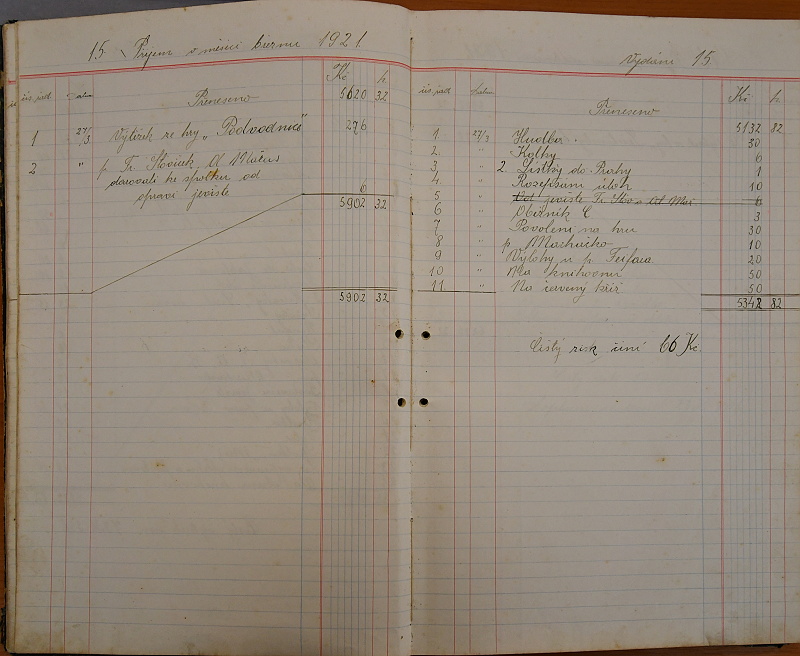 15. Příjem v měsíci březnu 1921.
čís. řad. Datum Kč h
Přeneseno 5620 32
1 27/3. Výtěžek ze hry „Podvodnice" 276
2 " p. Fr. Slavíček, Ul.
darovali ke spolku od
opravi jeviště 6
5902 32
5902 32
Vydání 15.
čís. řad. Datum Kč h
Přeneseno 5132 82
1. 27/3 Hudba. 30
2. " Kolky 6
3. " 2 Lístky do Prahy 1
4. " Rozepsání úloh 10
5 " Od jeviště Fr. 6
6 " Oběžník C 3
7 " Povolení na hru 30
8 " p. Macháčko 10
9 " Výlohy u p. 20
10 " Na knihovnu 50
11 " Na červený kříž 50
5342 82
Čistý zisk činí 66 Kč.